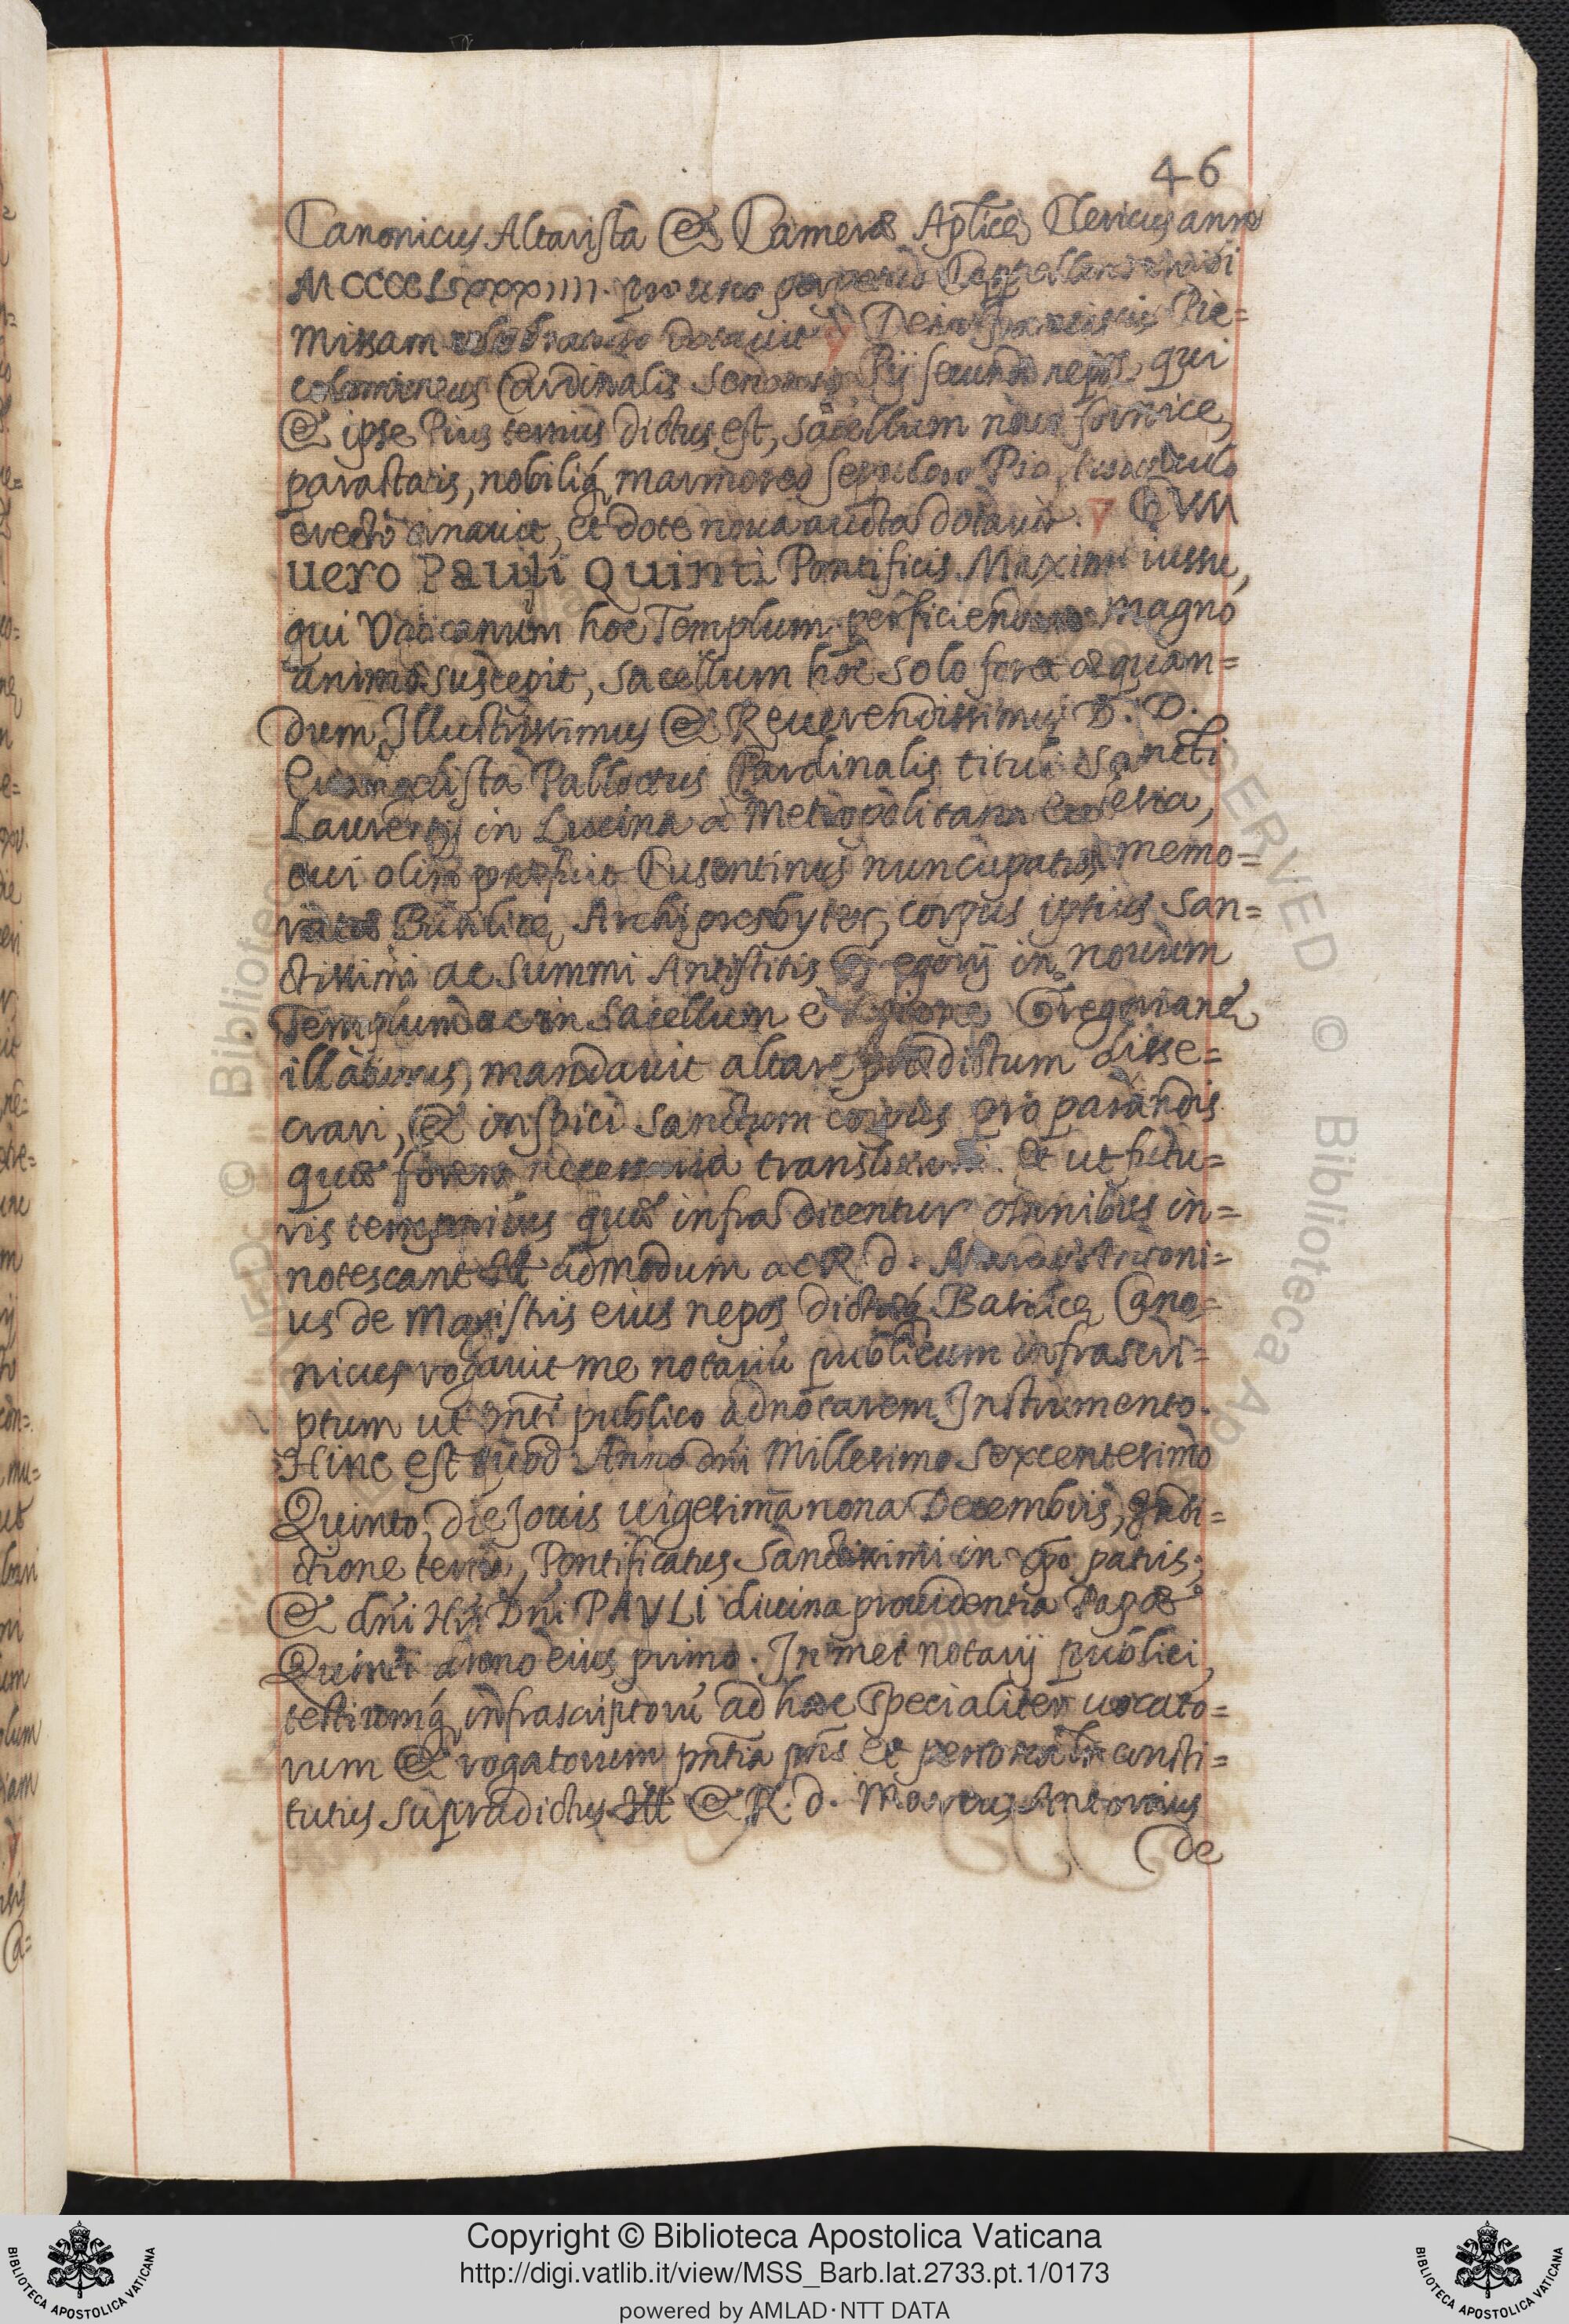 46
Canonicus Altarista & Cameræ Aplicę Clericus anno
MCCCCLXXXIIII. pro uno perpetuo Cappellano
missam dotauit Dein Franciscus Pic=
colomineus Cardinalis Senensis Pij secundi nepos, qui
& ipse Pius tertius dictus est, sacellum nouo fornice,
parastatis, nobiliq́ marmoreo sepulcro Pio
erecto ornauit, et dote noua aucta dotauit. CVM
uero Pauli Quinti Pontificis Maximi iussu,
qui Vaticanum hoc Templum perficiendum magno
animo suscepit, sacellum hoc solo foret æquan=
dum, Illustrissimus & Reuerendissimus D. D.
Euangelista Pallottus Cardinalis tituli Sancti
Laurentij in Lucina à Metropolitana ecclesia,
cui olim præfuit Cusentinus nuncupatus memo=
ratæ Basilicę Archipresbyter, corpus ipsius San=
ctissimi ac summi Antistitis Gregorij in nouum
Templum ac in sacellum è regione Gregorianę
illaturus, mandauit altare prædictum disse=
crari, & inspici sanctum corpus pro parandis
quæ forent necessaria translationi. Et ut futu=
ris temporibus quæ infra dicentur omnibus in=
notescant Ill admodum ac R d. Marcus Antoni=
us de Magistris eius nepos dictæq́ Basilicę Cano=
nicus rogauit me notariū publicum infrascri=
ptum ut pñti publico adnotarem Instrumento.
Hinc est quod Anno dñi Millesimo Sexcentesimo
Quinto, die Jouis uigesima nona Decembris, Indi=
ctione tertia, Pontificatus Sanctissimi in xpo patris,
& dñi Nri Dñi PAVLI diuina prouidentia Papæ
Quinti anno eius primo. In mei notarij publici,
testiumq́ infrascriptorū ad hæc specialiter uocato=
rum & rogatorum pñtia pñs et personaliter consti=
tutus supradictus Ill & R. d. Marcus Antonius
de
Copyright © Biblioteca Apostolica Vaticana
http://digi.vatlib.it/view/MSS_Barb.lat.2733.pt.1/0173
powered by AMLAD·NTT DATA